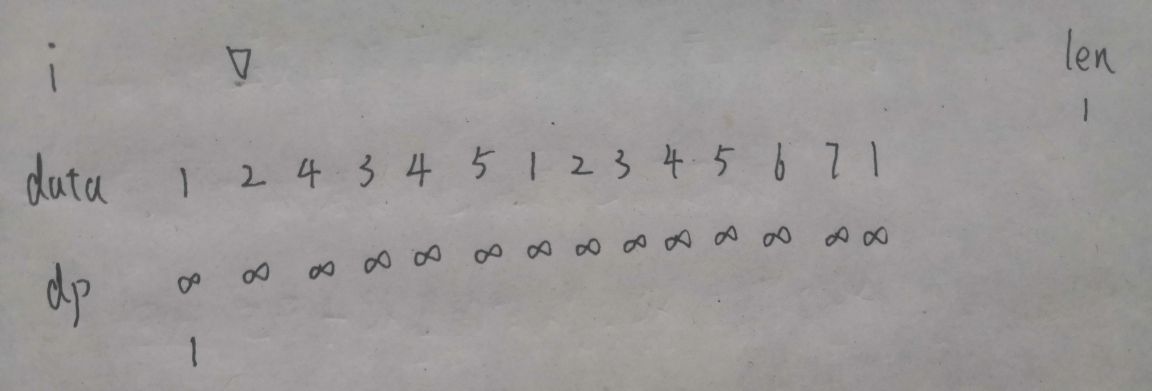 i ▽ len
1
data 1 2 4 3 4 5 1 2 3 4 5 6 7 1
dp ∞ ∞ ∞ ∞ ∞ ∞ ∞ ∞ ∞ ∞ ∞ ∞ ∞ ∞
1